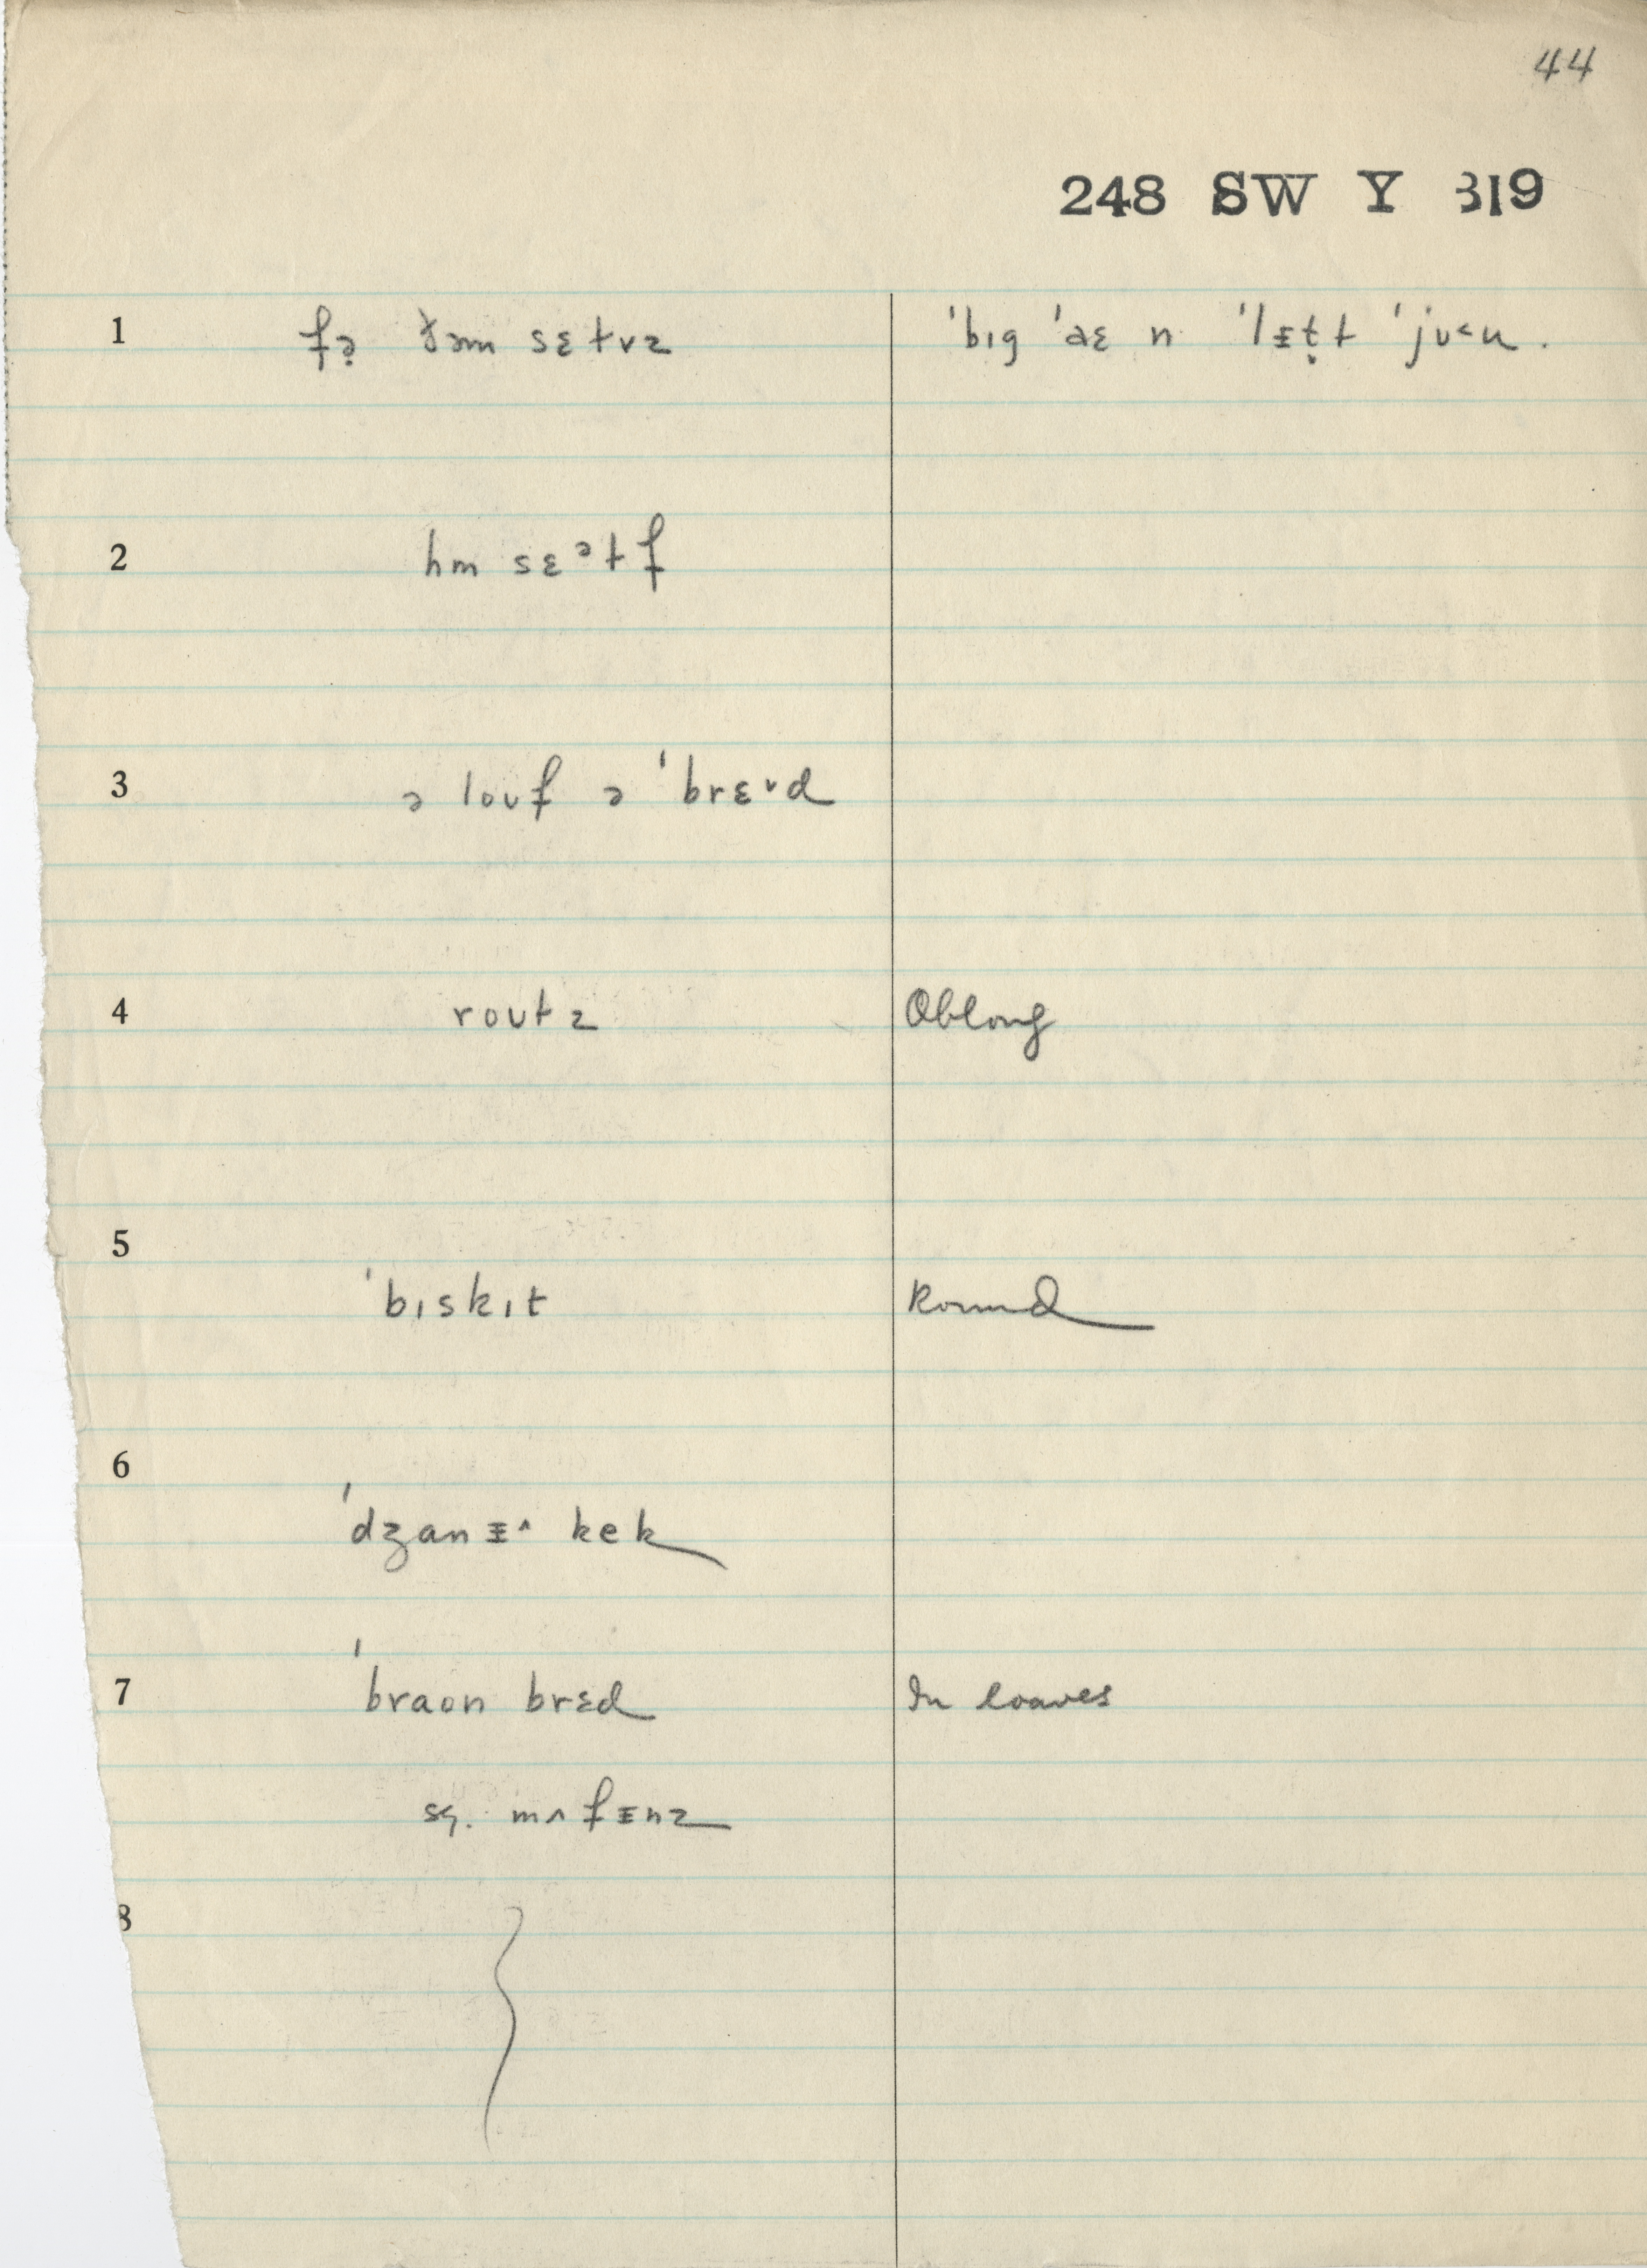 44
248 SW Y 319
1 fə̣ ðəm sɛtvz 'bɪg 'aɛ n 'lɪṭt 'jʊ˂u.
2 hm sɛᵊtf
3 ə loʊf ə 'brɛ˅d
4 roʊtz Oblong
5 'bɪskɪt Round
6 'dʒanɪ^ kek
7 'braʊn brɛd In loaves
sg. mʌfɪnz
8